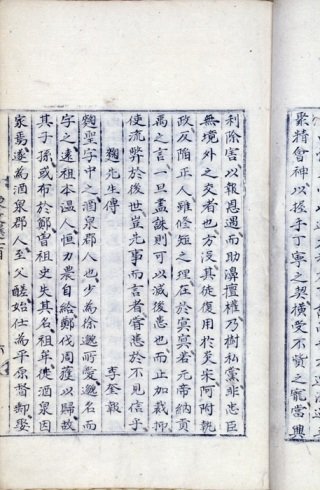 聚精會神以握手丁寧之契橫受不貲之寵當興
利除害以報恩遇而助濞擅權乃樹私黨非忠臣
無境外之交者也方沒其徒復用於炎宋阿附執
政反陷正人雖修短之理在於冥冥若元帝納貢
禹之言一旦盡誅則可以減後患也而止加裁抑
使流弊於後世豈先事而言者嘗患於不見信乎
麴先生傳 李奎報
麴聖字中之酒泉郡人也少為徐邈所愛邈名而
字之遠祖本温人恒力農自給鄭伐周獲以歸故
其子孫或布於鄭曾祖史失其名祖牟徙酒泉因
家焉遂為酒泉郡人至父醝始仕為平原督郵娶